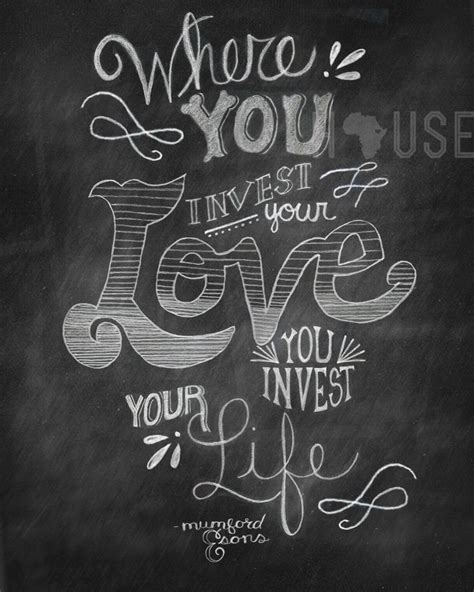 Where
YOU
USE
INVEST
your
Love
YOU
INVEST
YOUR
Life
-mumford
& sons